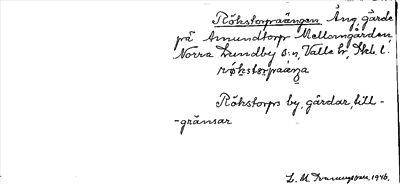 Rökstorpaängen Äng, gärde
på Amundtorp Mellomgården,
Norra Lundby s:n, Valle hd, Skb. l.
røkstorpaæŋa
Rökstorps by, gärdar, till-
-gränsar
L. M. 1946.